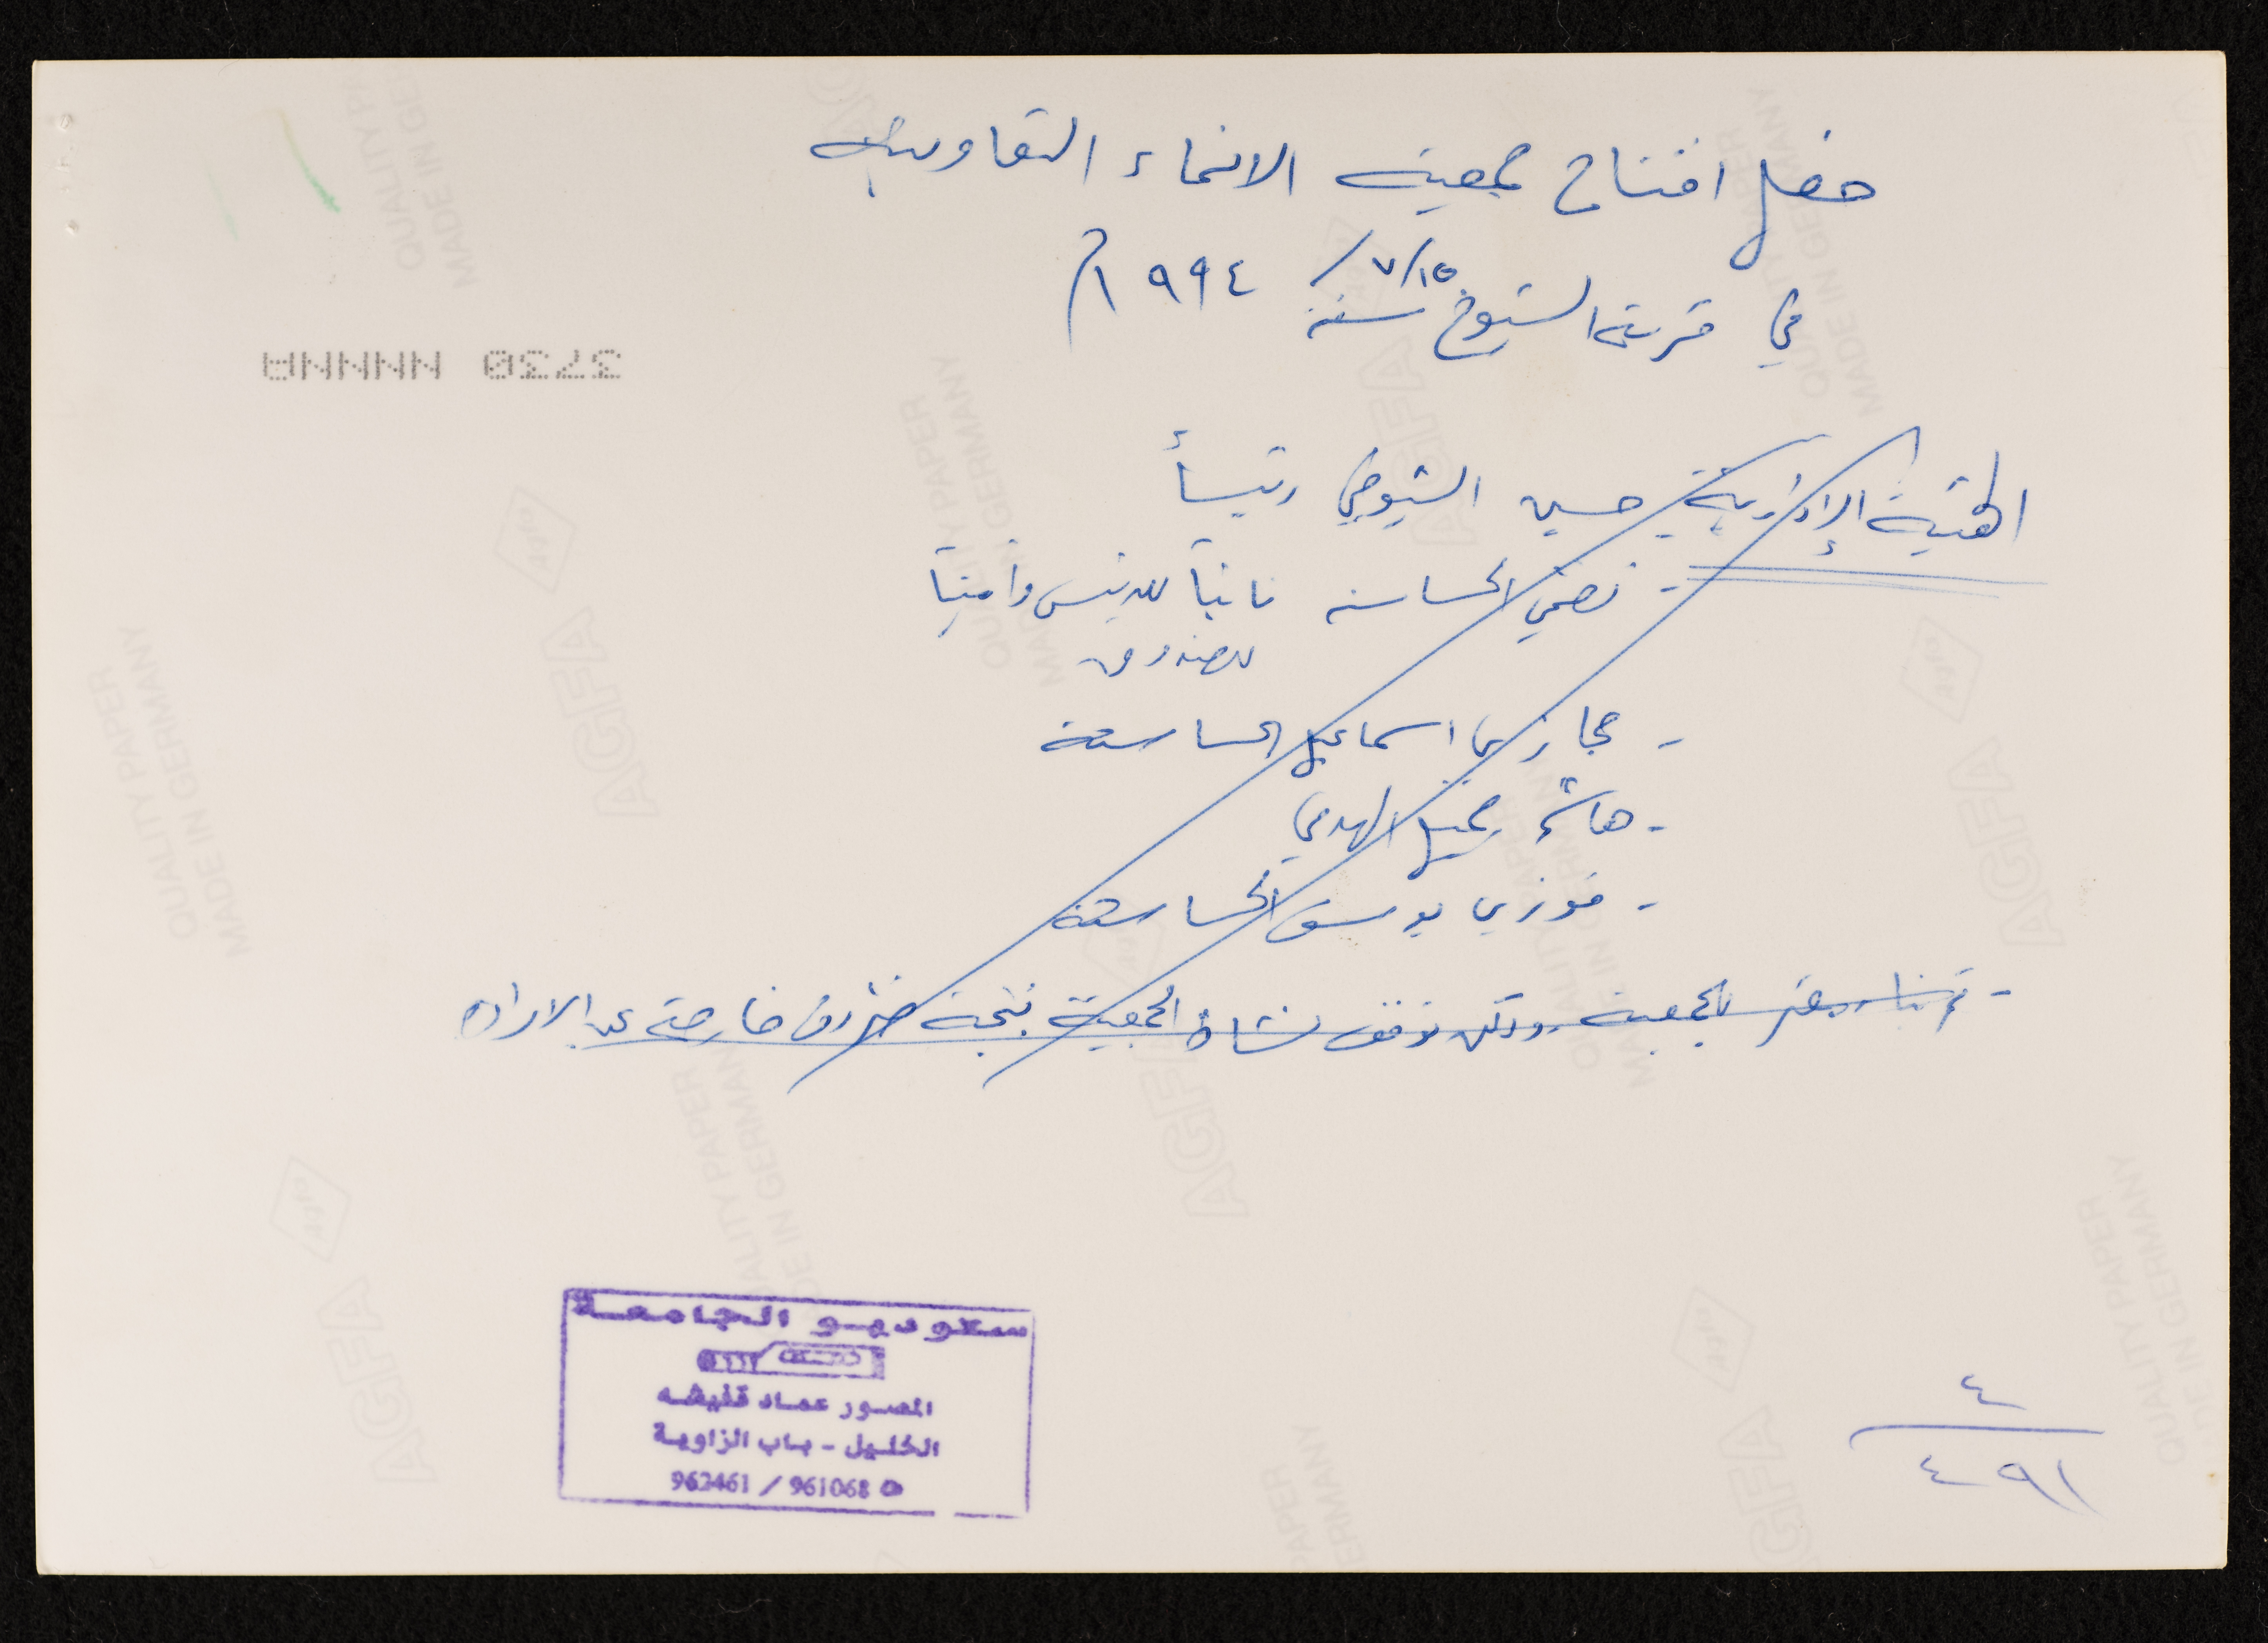 حفل افتتاح جمعية الانماء التعاونية
في قرية الشيوخ ١٥/٧/ سنة ١٩٩٤م
الهيئة الإدارية حسين الشيوخي رئيسأ
- الحساسنه نائباً للرئيس وأميناً
للصندوق
- حجازي اسماعيل الحساسنة
- هاشم جميل
- فوزي يوسف الحساسنة
- تم بناء مقر للجمعية ولكن توقف نشاط الجمعية نتيجة ظروف خارجة عن الاراده
37230 NNNNA
ستوديو الجامعة
المصور عماد قفيشه
الخليل - باب الزاوية
962461 / 961068
٤
٤٩١
AGFA
QUALITY PAPER
MADE IN GERMANY